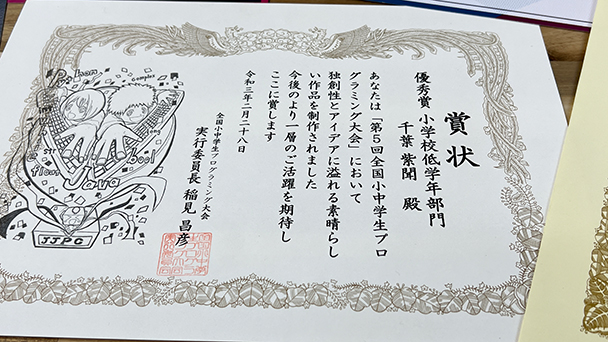 賞状
優秀賞 小学校低学年部門
千葉 紫聞 殿
あなたは「第5回全国小中学生プロ
グラミング大会」において
独創性とアイデアに溢れる素晴らし
い作品を制作されました
今後のより一層のご活躍を期待し
ここに賞します
令和三年二月二十八日
全国小中学生プログラミング大会
実行委員長 稲見 昌彦
Python
complex
str
bool
float
Java
JJPC